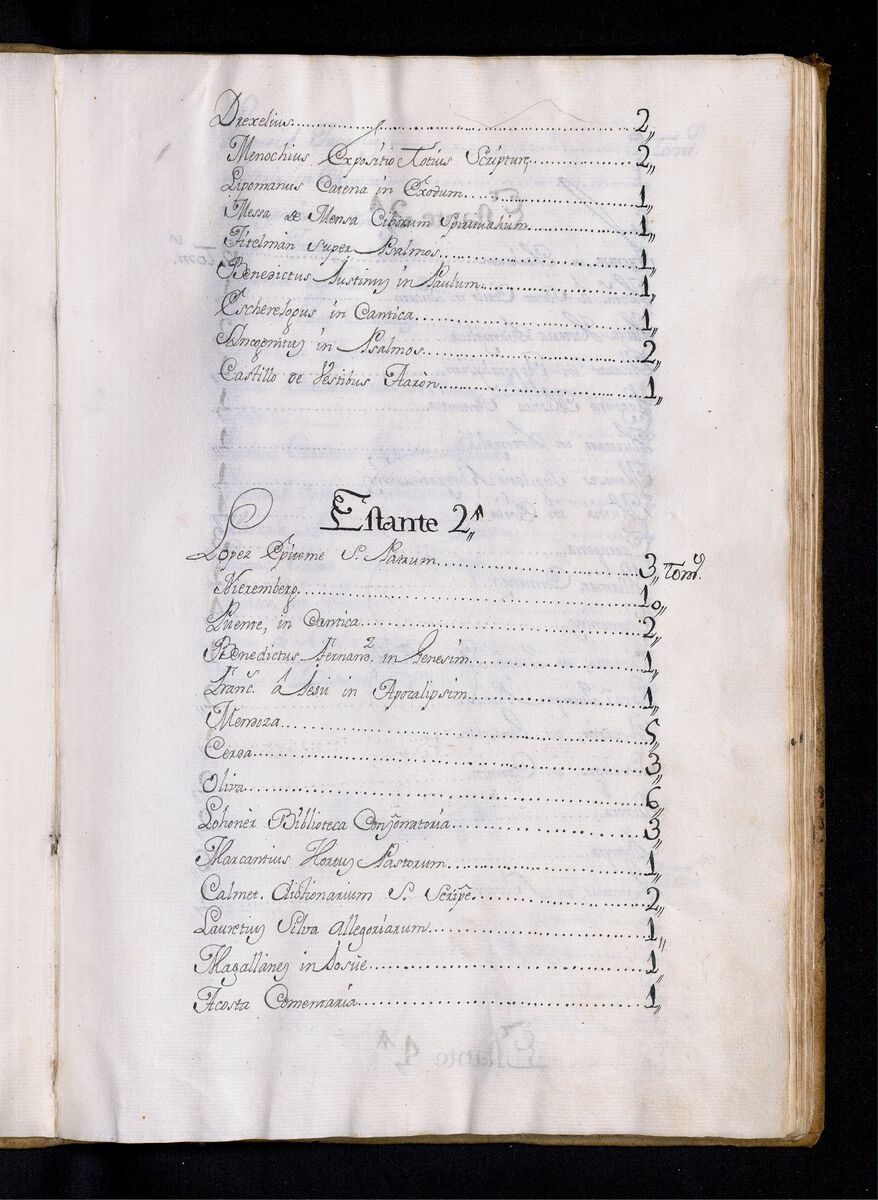 Drexelius............ 2,,
Menochius Expositio Totius Scripturę............ 2,,
Lipomanus Catena in Exodum............ 1,,
Messa de Mensa Ciborum Spiritualium............ 1,,
Titelmàn super Psalmos............ 1,,
Benedictus Justiniꝰ in Paulum............ 1,,
in Cantica............ 1,,
in Psalmos............ 2,,
Castillo de Vestibus Aaròn............ 1,,
Estante 2ª,,
Lopez Epitome S. Patrum............ 3,, Tomˢ.
Nieremberg............ 10,,
Puente, in Cantica............ 2,,
Benedictus Fernandᶻ. in Genesim............ 1,,
Franc̃. â Jesu in Apocalipsim............ 1,,
Mendoza............ 5,,
Cerda............ 3,,
Oliva............ 6,,
Lohonèr Biblioteca Conc̃onatoria............ 3,,
Marcantius Hortuꝰ Pastorum............ 1,,
Calmet. Dictionarium S. Scrip̃e............ 2,,
Lauretiuꝰ Silva Allegoriarum............ 1,,
Magallàneꝰ in Josùe............ 1,,
Acosta Comentaria............ 1,,